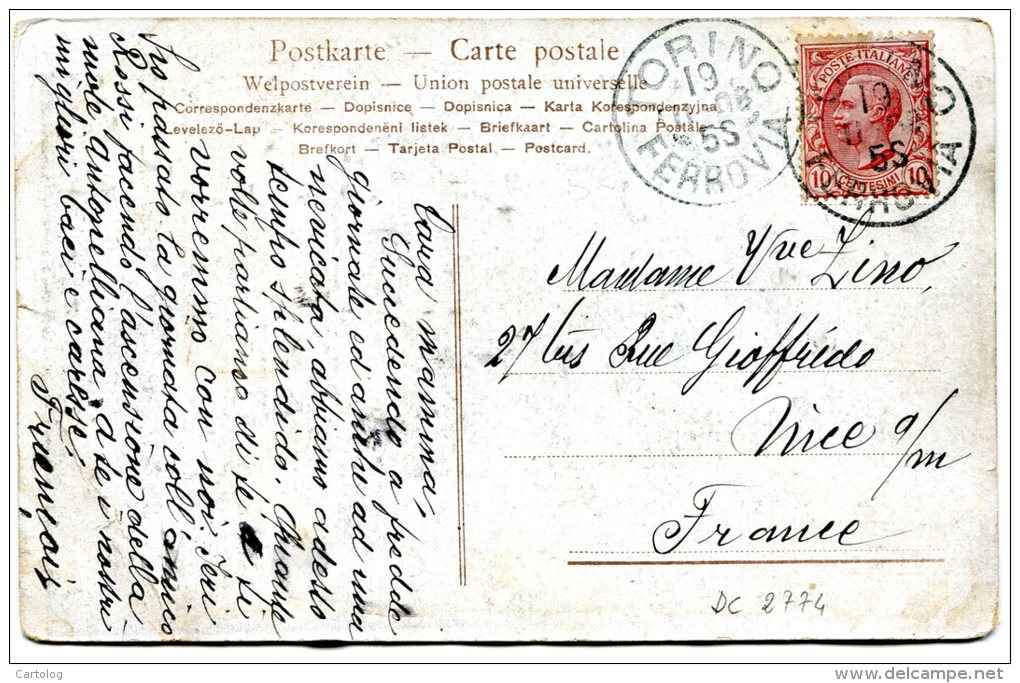 Postkarte — Carte postale
Weltpostverein — Union postale universelle
Correspondenzkarte — Dopisnice — Dopisnica — Karta Korespondenzyjna
Levelező-Lap — Korespondenēni listek — Briefkaart — Cartolina Postale
Brefkort — Tarjeta Postal — Postcard.
TORINO
19
5S
FERROVIA
POSTE·ITALIANE
10 CENTESIMI 10
19
5S
Cara mamma,
Succedendo a fredde
giornate ed anche ad una
nevicata, abbiamo adesso
tempo splendido. Quante
volte parliamo di te e ti
vorremmo con noi. Ieri
ho passato la giornata coll'amico
Rossi facendo l'ascensione della
mole Antonelliana. A te i nostri
migliori baci e carezze,
François
Madame Vve Zino,
27 bis Rue Gioffrédo
Nice a/m
France
DC 2774
Cartolog
delcampe.net